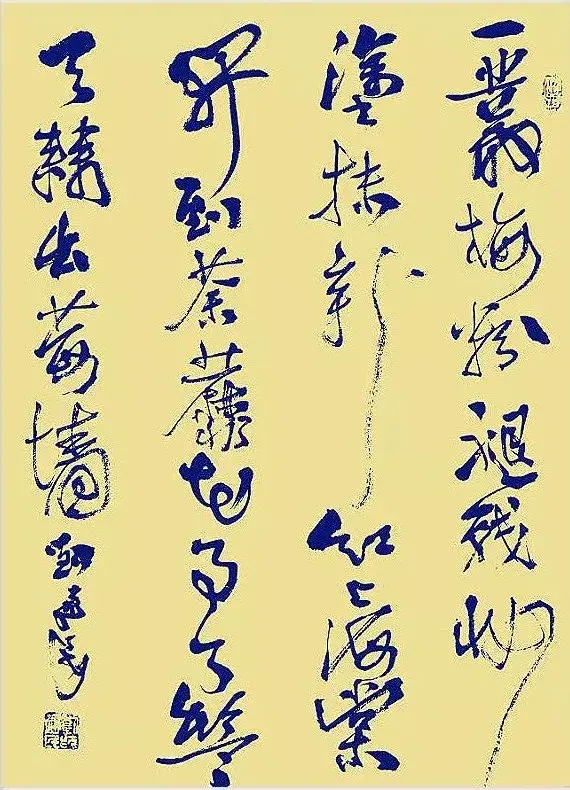 一叢梅粉褪殘妝
塗抹新紅上海棠
開到荼蘼花事了絲絲
天棘出莓墻